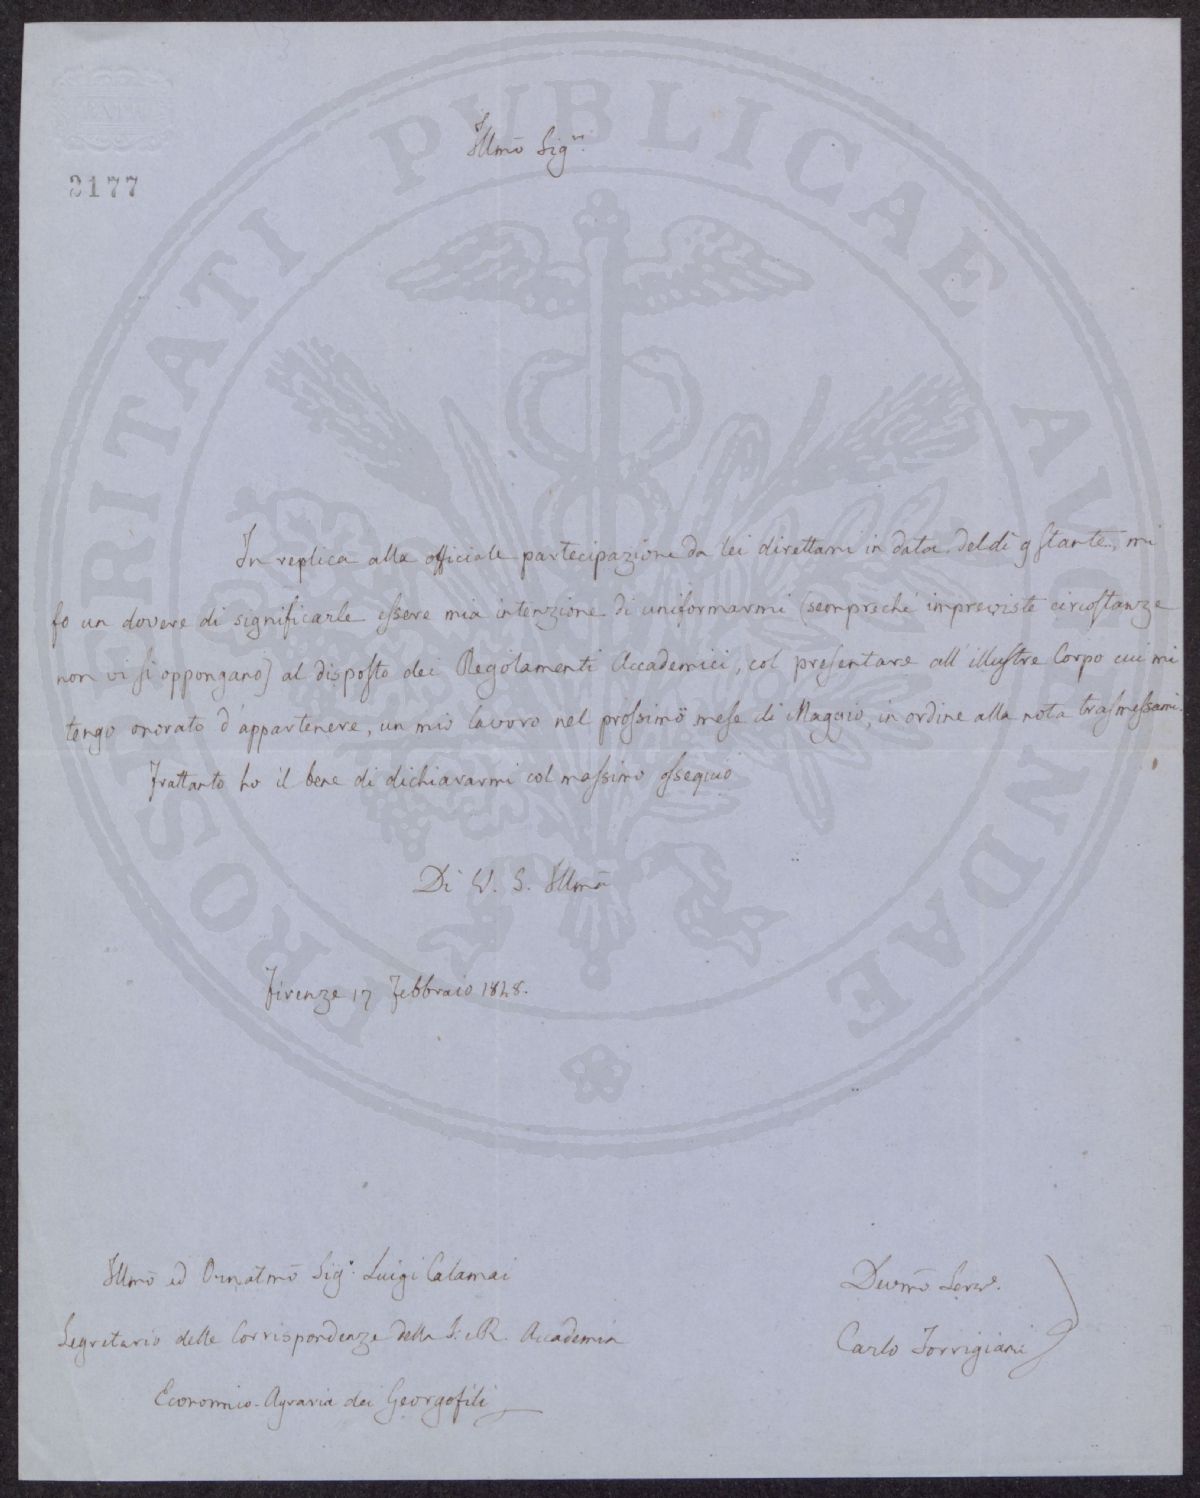 2177
Illmo Sigre.
In replica alla officiale partecipazione da lei direttami in data del dì 9 stante, mi
fo un dovere di significarle essere mia intenzione di uniformarmi (sempreché impreviste circostanze
non vi si oppongano) al disposto dei Regolamenti Accademici, col presentare all'illustre Corpo cui mi
tengo onorato d'appartenere, un mio lavoro nel prossimo mese di Maggio, in ordine alla nota trasmessami.
Frattanto ho il bene di dichiararmi col massimo ossequio
Di V. S. Illma
Firenze 17 Febbraio 1848.
Illmo ed Ornatmo Sigr. Luigi Calamai
Segretario delle Corrispondenze della I. e R. Accademia
Economico-Agraria dei Georgofili
Devmo Serve.
Carlo Torrigiani
PROSPERITATI PUBLICAE AUGENDAE